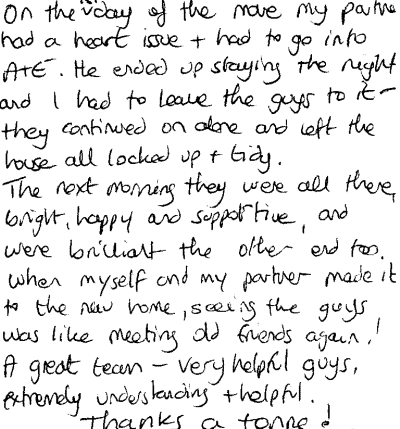 On the day of the move my partner
had a heart issue + had to go into
A+E. He ended up staying the night
and I had to leave the guys to it -
they continued on alone and left the
house all locked up + tidy.
The next morning they were all there,
bright, happy and supportive, and
were brilliant the other end too.
When myself and my partner made it
to the new home, seeing the guys
was like meeting old friends again!
A great team - very helpful guys,
extremely understanding + helpful.
Thanks a tonne!